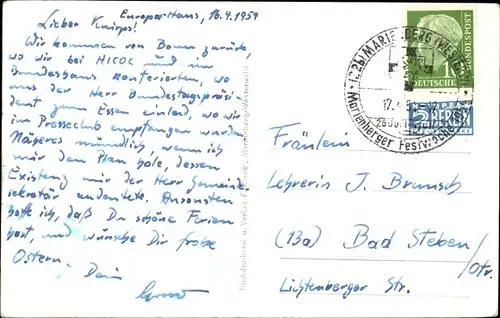 Europa-Haus, 16.4.1954
Lieber Knirps!
Wir kommen von Bonn zurück,
wo wir bei HICOC und im
Bundeshaus konferierten, wo
uns der Herr Bundestagspräsi-
dent zum Essen einlud, wo wir
im Presseclub empfangen wurden
Näheres mündlich, wenn ich
mir den Plan hole, dessen
Existenz mir der Herr Gemeinde-
sekretär andeutete. Ansonsten
hoffe ich, daß Du schöne Ferien
hast, und wünsche Dir frohe
Ostern. Dein
MARIENBERG (WESTERW)
17.4.
Marienberger Festwoche
DEUTSCHE BUNDESPOST
2 BERLIN
Fräulein
Lehrerin J. Braunsch
(13a) Bad Steben /Ofr.
Lichtenberger Str.